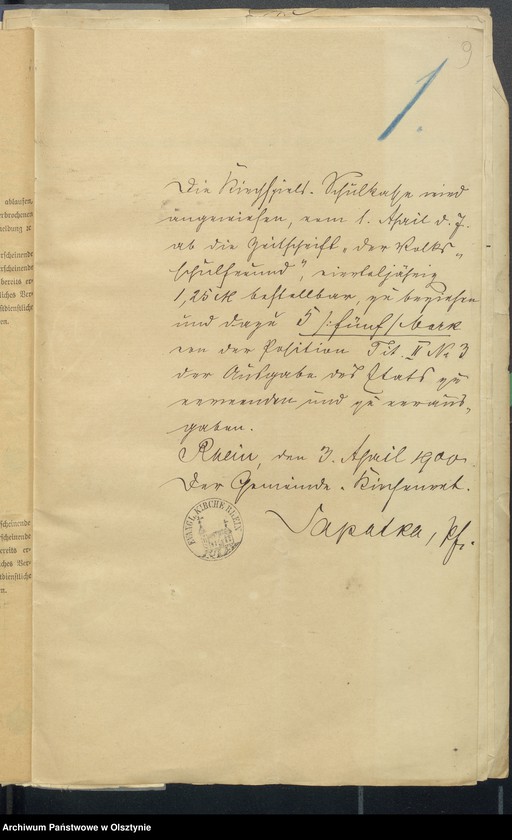 9
1.
Die Kirchspiels-Schulkasse wird
angewiesen, vom 1. April d. J.
ab die Zeitschrift „der Volks-
schulfreund“, vierteljährig
1,25 M bestellbar, zu beziehen
und dazu 5 /: fünf :/ Mark
von der Position Tit. II No 3
der Ausgabe des Etats zu
verwenden und zu veraus-
gaben.
Rhein, den 3. April 1900.
Der Gemeinde-Kirchenrat.
Sapatka, Pfr.
KÖNIGL. KIRCHE RHEIN
ablaufen,
erbrochenen
scheinende
rscheinende
bereus er-
liches Ver-
tdienstliche
en.
scheinende
rscheinende
bereits er-
ches Ver-
tdienstliche
n.
Archiwum Państwowe w Olsztynie